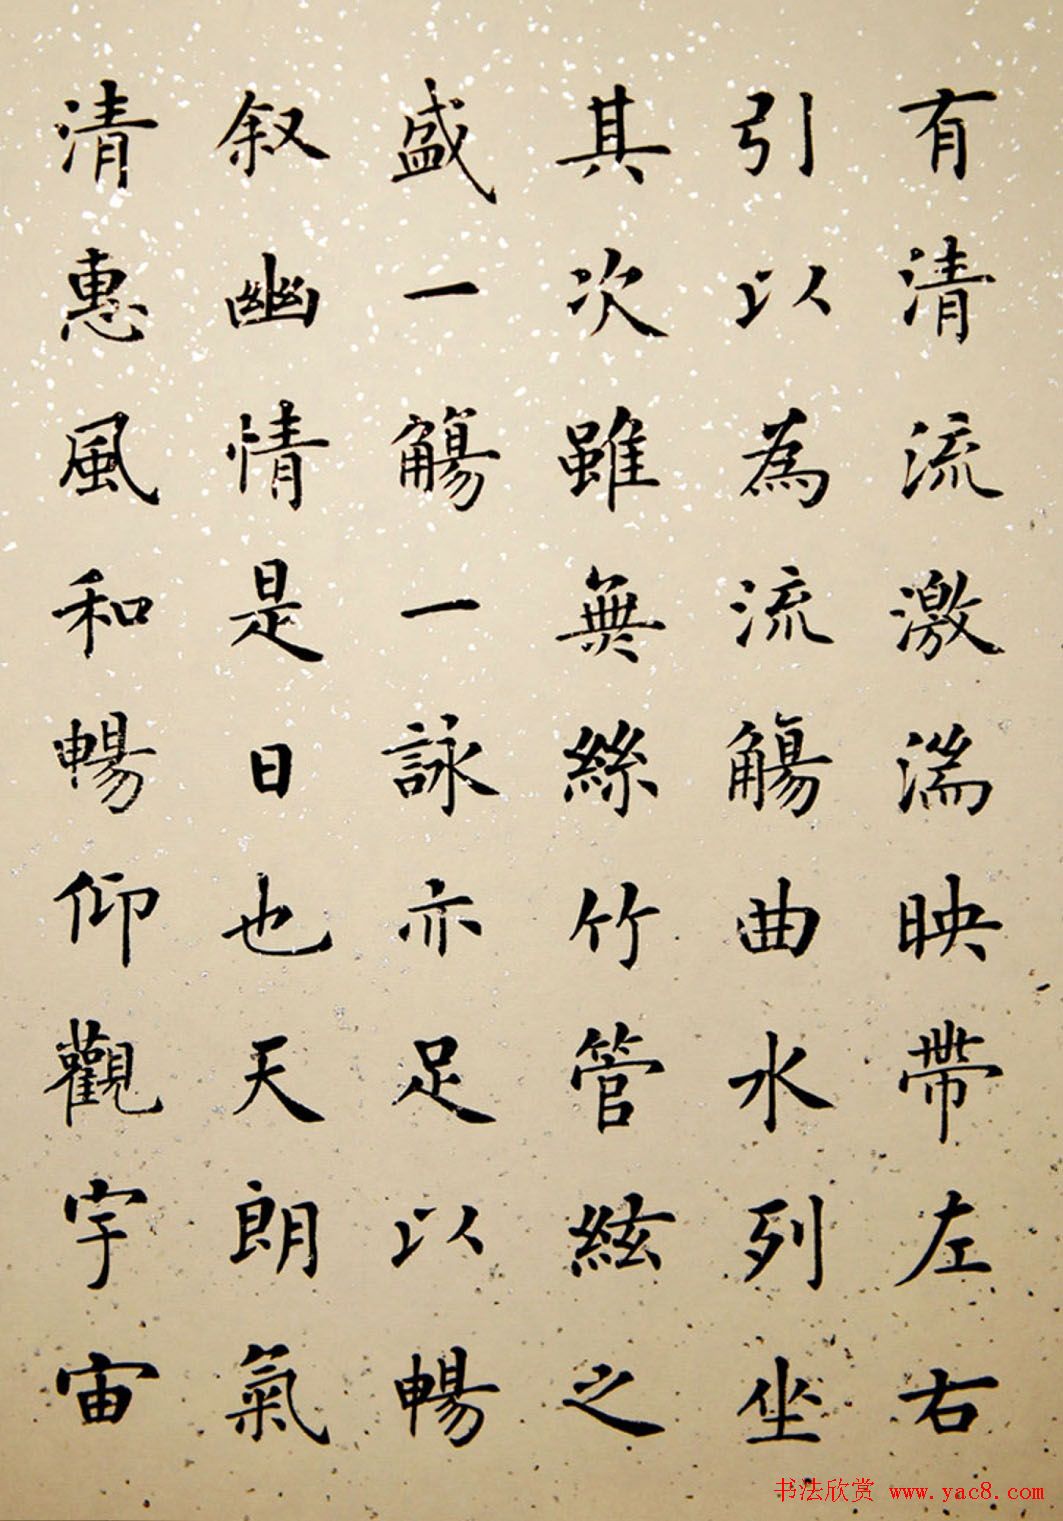 有清流激湍映帶左右
引以為流觴曲水列坐
其次雖無絲竹管絃之
盛一觴一詠亦足以暢
叙幽情是日也天朗氣
清惠風和暢仰觀宇宙
书法欣赏 www.yac8.com